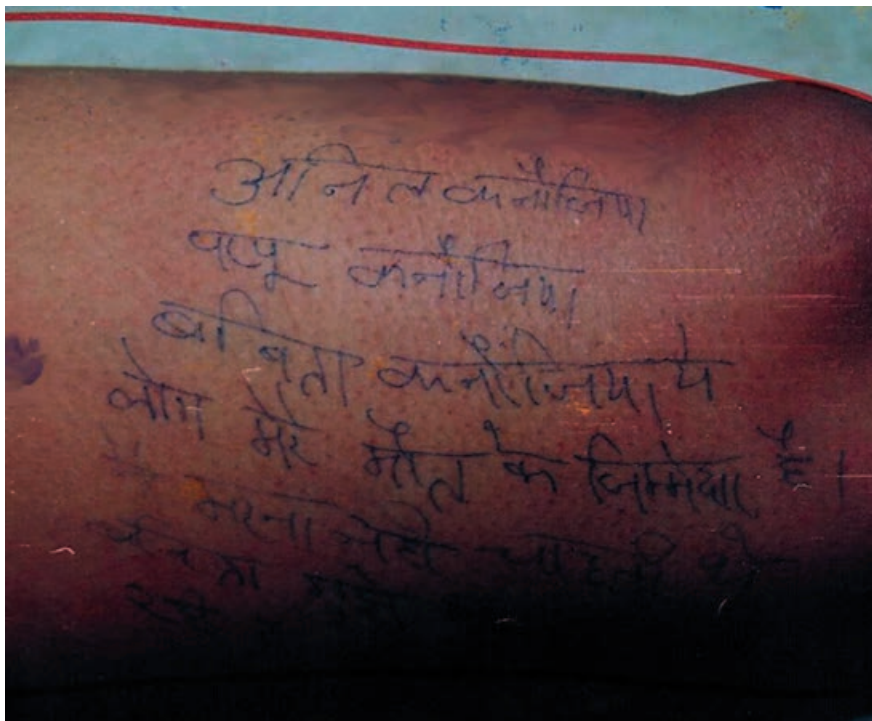 अनिल कनौजिया
पप्पू कनौजिया
बबिता कनौजिया ये
लोग मेरे मौत के जिम्मेदार है।
मरना नही चाहती थी